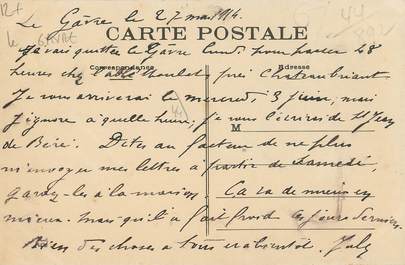 Le Gâvre le 27 mai 14.
CARTE POSTALE
Je vais quitter le Gâvre lundi pour passer 48
Correspondance
Adresse
heures chez l'abbé près Chateaubriant
Je vous arriverai le mercredi 3 juin, mais
j'ignore à quelle heure, je vous l'écrirai de St Jean
M
de Béré. Dites au facteur de ne plus
m'envoyer mes lettres à partir de samedi,
gardez-les à la maison
Ça va de mieux en
mieux. mais qu'il a fait froid ces jours derniers
Bien des choses à tous et à bientôt. July